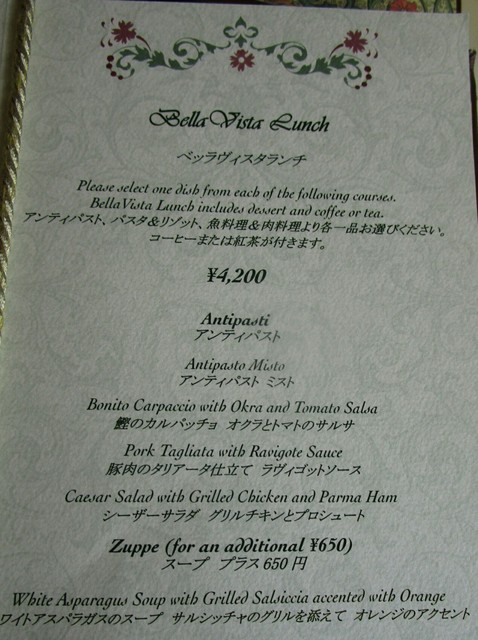 BellaVista Lunch
ベッラヴィスタランチ
Please select one dish from each of the following courses.
BellaVista Lunch includes dessert and coffee or tea.
アンティパスト、パスタ&リゾット、魚料理&肉料理より各一品お選びください。
コーヒーまたは紅茶が付きます。
¥4,200
Antipasti
アンティパスト
Antipasto Misto
アンティパスト ミスト
Bonito Carpaccio with Okra and Tomato Salsa
鰹のカルパッチョ オクラとトマトのサルサ
Pork Tagliata with Ravigote Sauce
豚肉のタリアータ仕立て ラヴィゴットソース
Caesar Salad with Grilled Chicken and Parma Ham
シーザーサラダ グリルチキンとプロシュート
Zuppe (for an additional ¥650)
スープ プラス 650 円
White Asparagus Soup with Grilled Salsiccia accented with Orange
ワイトアスパラガスのスープ サルシッチャのグリルを添えて オレンジのアクセント